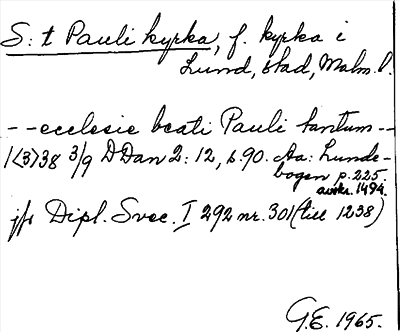 S: t Pauli kyrka, f. kyrka i
Lund, stad, Malm. l.
- - ecclesie beati Pauli tantum - -
1<3>38 3/9 DDan 2: 12, s. 90. Aa: Lunde-
bogen p. 225.
avskr. 1494.
jfr Dipl. Svec. I 292 nr. 301 (till 1238)
G.E. 1965.